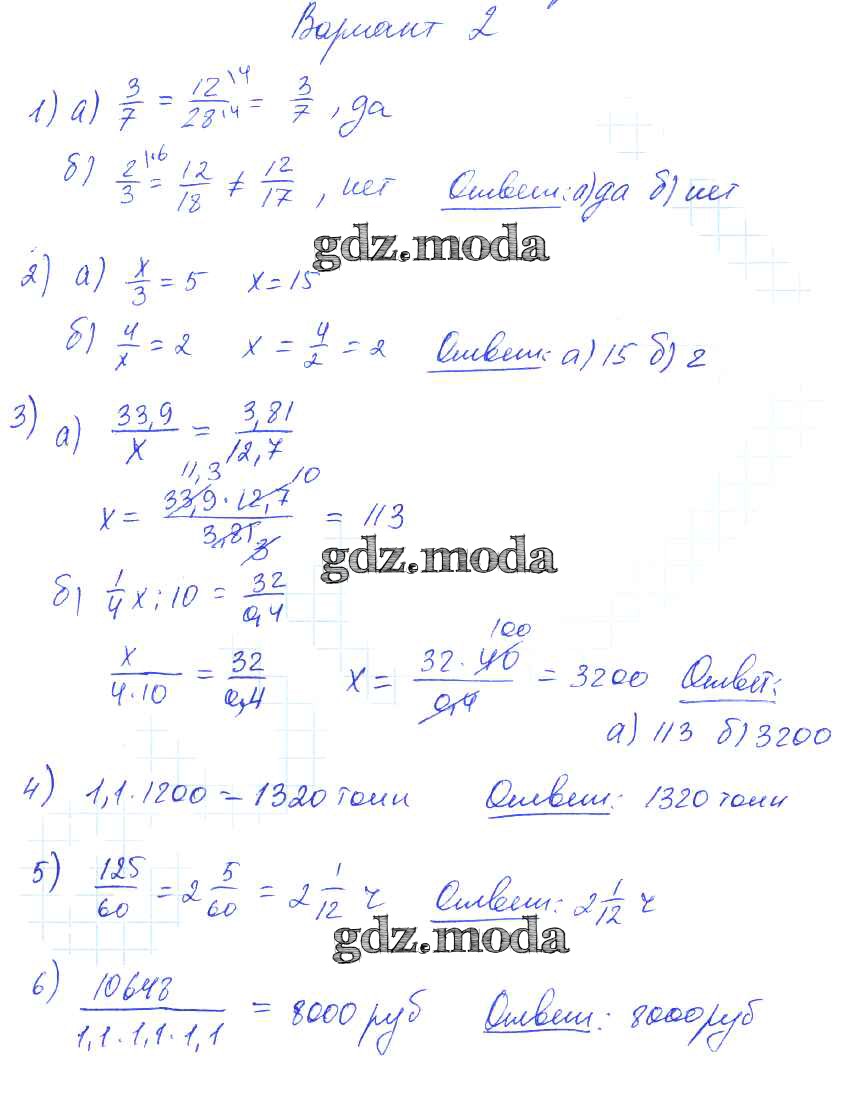 Вариант 2
1) а) 3/7 = 12\4/28\4 = 3/7, да
б) 2/3 |·6 = 12/18 ≠ 12/17, нет Ответ: а) да б) нет
gdz.moda
2) а) x/3 = 5 x = 15
б) 4/x = 2 x = 4/2 = 2 Ответ: а) 15 б) 2
3) а) 33,9/x = 3,81/12,7
11,3 10
x = 33,9 · 12,7/3,81 = 113
3
gdz.moda
б) 1/4 x : 10 = 32/0,4
100
x/4·10 = 32/0,4 x = 32 · 40/0,4 = 3200 Ответ:
а) 113 б) 3200
4) 1,1 · 1200 = 1320 тонн Ответ: 1320 тонн
5) 125/60 = 2 5/60 = 2 1/12 ч Ответ: 2 1/12 ч
gdz.moda
6) 10648/1,1 · 1,1 · 1,1 = 8000 руб Ответ: 8000 руб